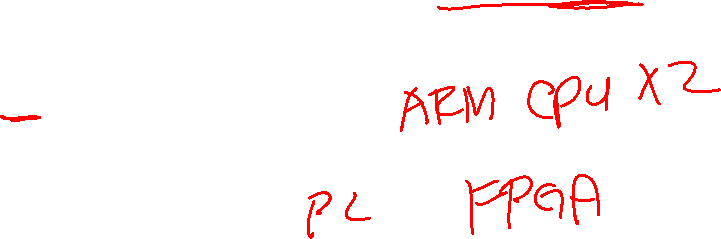 ARM CPU X2
PL FPGA